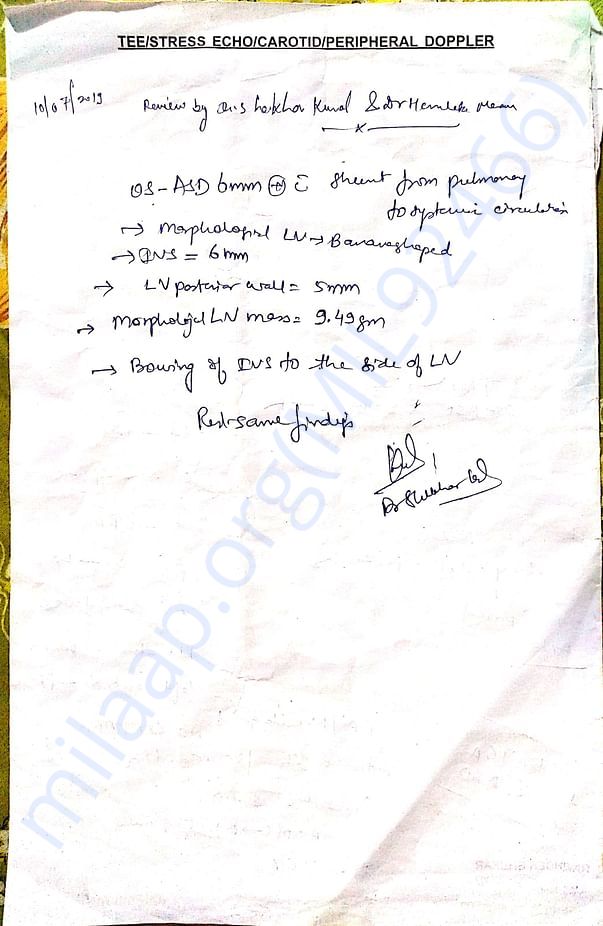 TEE/STRESS ECHO/CAROTID/PERIPHERAL DOPPLER
10/07/2019 Review by Drs Shekhar Kunal & Dr Hemlata
OS-ASD 6mm ⊕ c̄ shunt from pulmonary
to systemic circulation
→ Morphological LV → Bananashaped
→ IVS = 6mm
→ LV posterior wall = 5mm
→ Morphological LV mass = 9.49gm
→ Bowing of IVS to the side of LV
Rest same findings
Dr Shekhar
milaap.org(MIL92466)